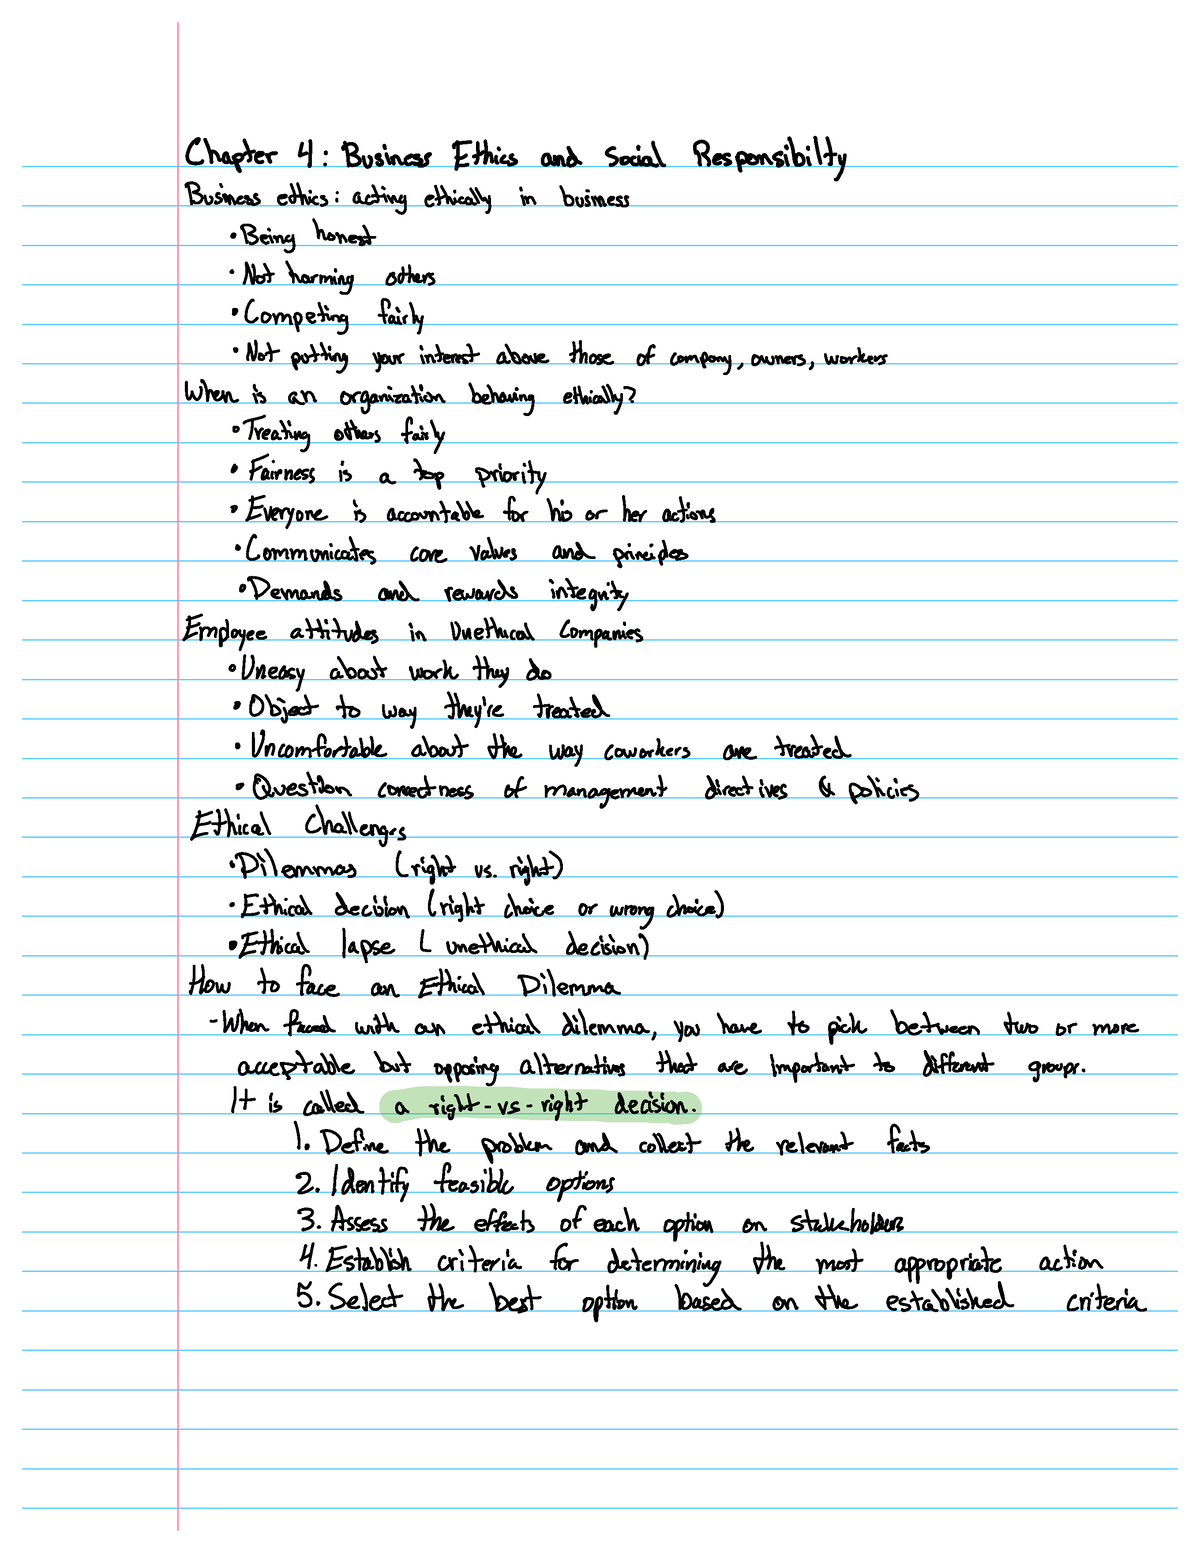 Chapter 4: Business Ethics and Social Responsibilty
Business ethics: acting ethically in business
• Being honest
• Not harming others
• Competing fairly
• Not putting your interest above those of company, owners, workers
When is an organization behaving ethically?
• Treating others fairly
• Fairness is a top priority
• Everyone is accountable for his or her actions
• Communicates core values and principles
• Demands and rewards integrity
Employee attitudes in Unethical Companies
• Uneasy about work they do
• Object to way they're treated
• Uncomfortable about the way coworkers are treated
• Question correctness of management directives & policies
Ethical Challenges
• Dilemmas (right vs. right)
• Ethical decision (right choice or wrong choice)
• Ethical lapse (unethical decision)
How to face an Ethical Dilemma
- When faced with an ethical dilemma, you have to pick between two or more
acceptable but opposing alternatives that are important to different groups.
It is called a right-vs-right decision.
1. Define the problem and collect the relevant facts
2. Identify feasible options
3. Assess the effects of each option on stakeholders
4. Establish criteria for determining the most appropriate action
5. Select the best option based on the established criteria